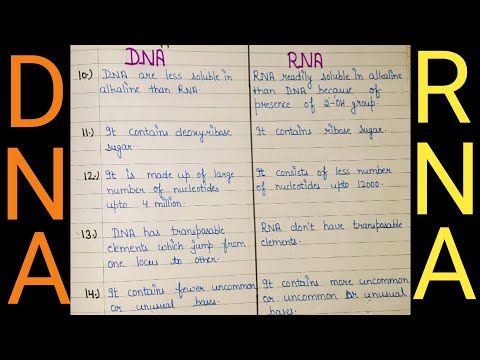 D
N
A
DNA
RNA
10.) DNA are less soluble in
alkaline than RNA.
RNA readily soluble in alkaline
than DNA because of
presence of 2-OH group.
11.) It contains deoxyribose
sugar.
It contains ribose sugar.
12.) It is made up of large
number of nucleotides
upto 4 million.
It consists of less number
of nucleotides upto 12000.
13.) DNA has transposable
elements which jump from
one locus to other.
RNA don't have transposable
elements.
14.) It contains fewer uncommon
or unusual bases.
It contains more uncommon
or uncommon or unusual
bases.
R
N
A